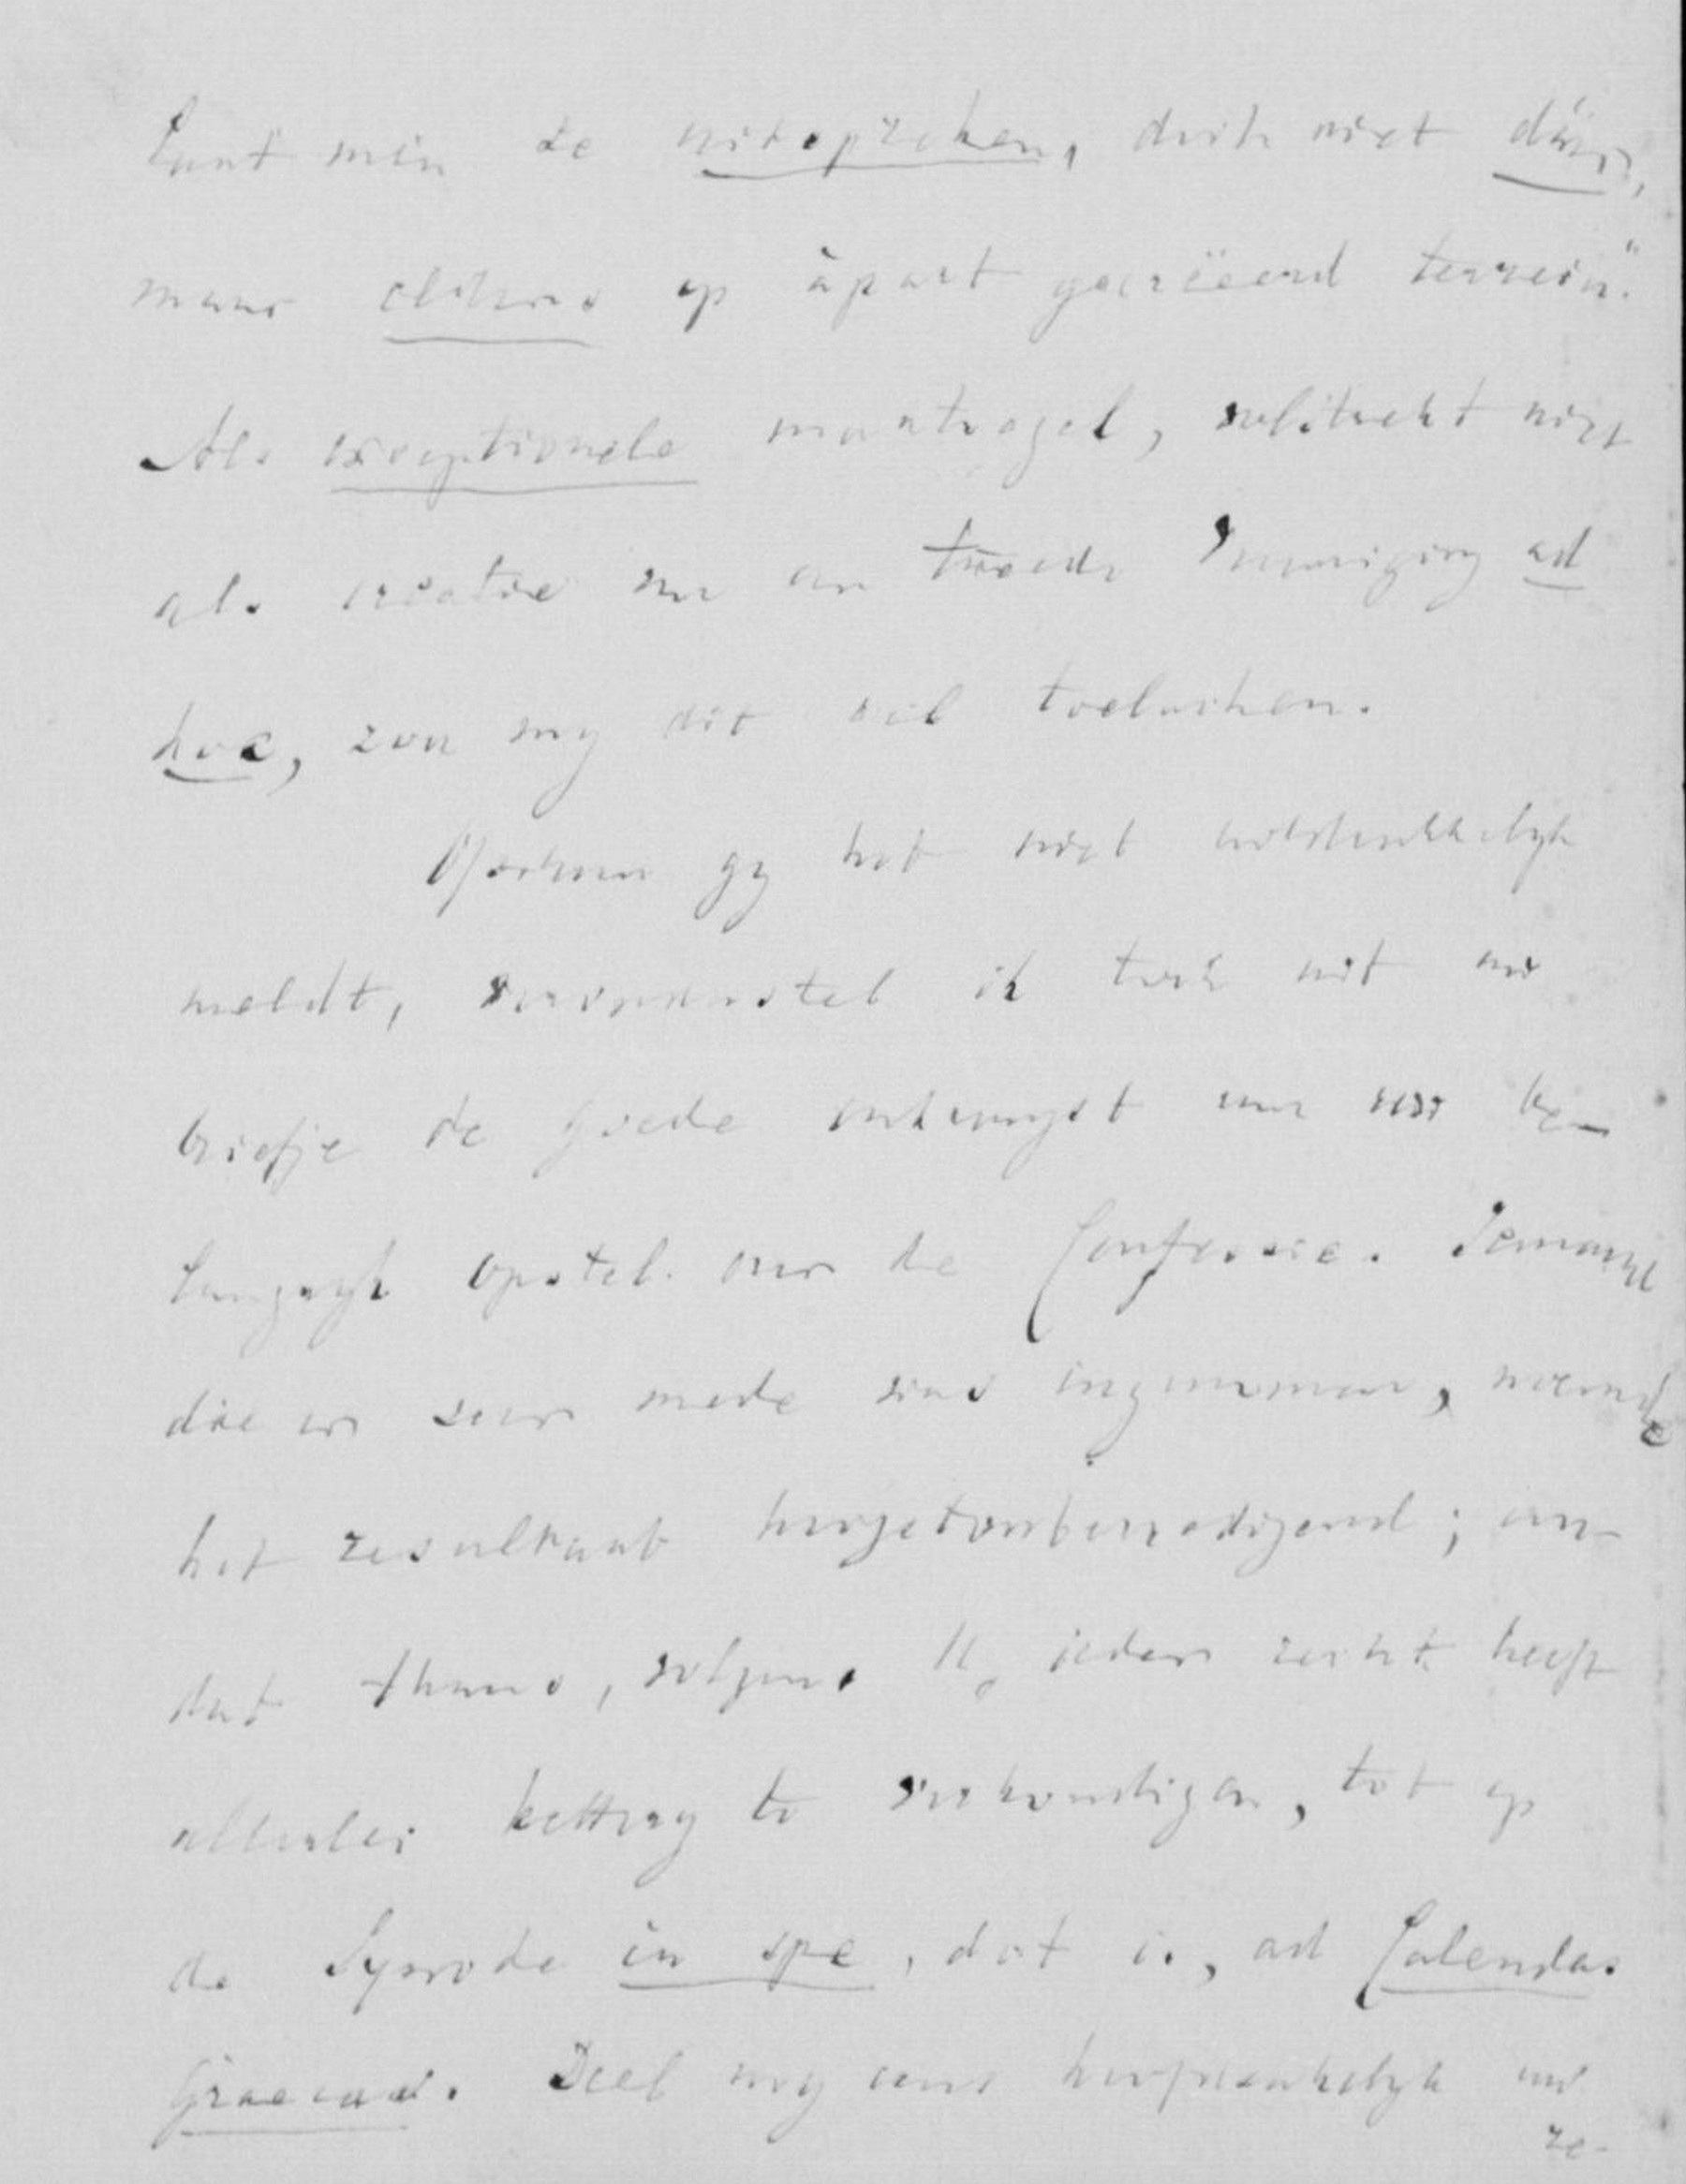 laat men ze uitspreken, doch niet dáár,
maar elders op àpart gecreëerd terrein".
Als exceptionele maatregel, volstrekt niet
als creatie van een tweede Vereeniging ad
hoc, zou my dit wel toelachen.
Ofschoon gy het niet uitdrukkelyk
meldt, veronderstel ik toch uit uw
briefje de goede ontvangst van uw be-
langryk opstel over de Confessie. Iemand
die er zeer mede was ingenomen, noemde
het resultaat hoogstonbevredigend; om-
dat thans, volgens U, ieder recht heeft
allerlei kettery te verkondigen, tot op
de Synode in spe, dat is, ad Calendas
Graecas. Deel my eens hoofdzakelyk uw
re-